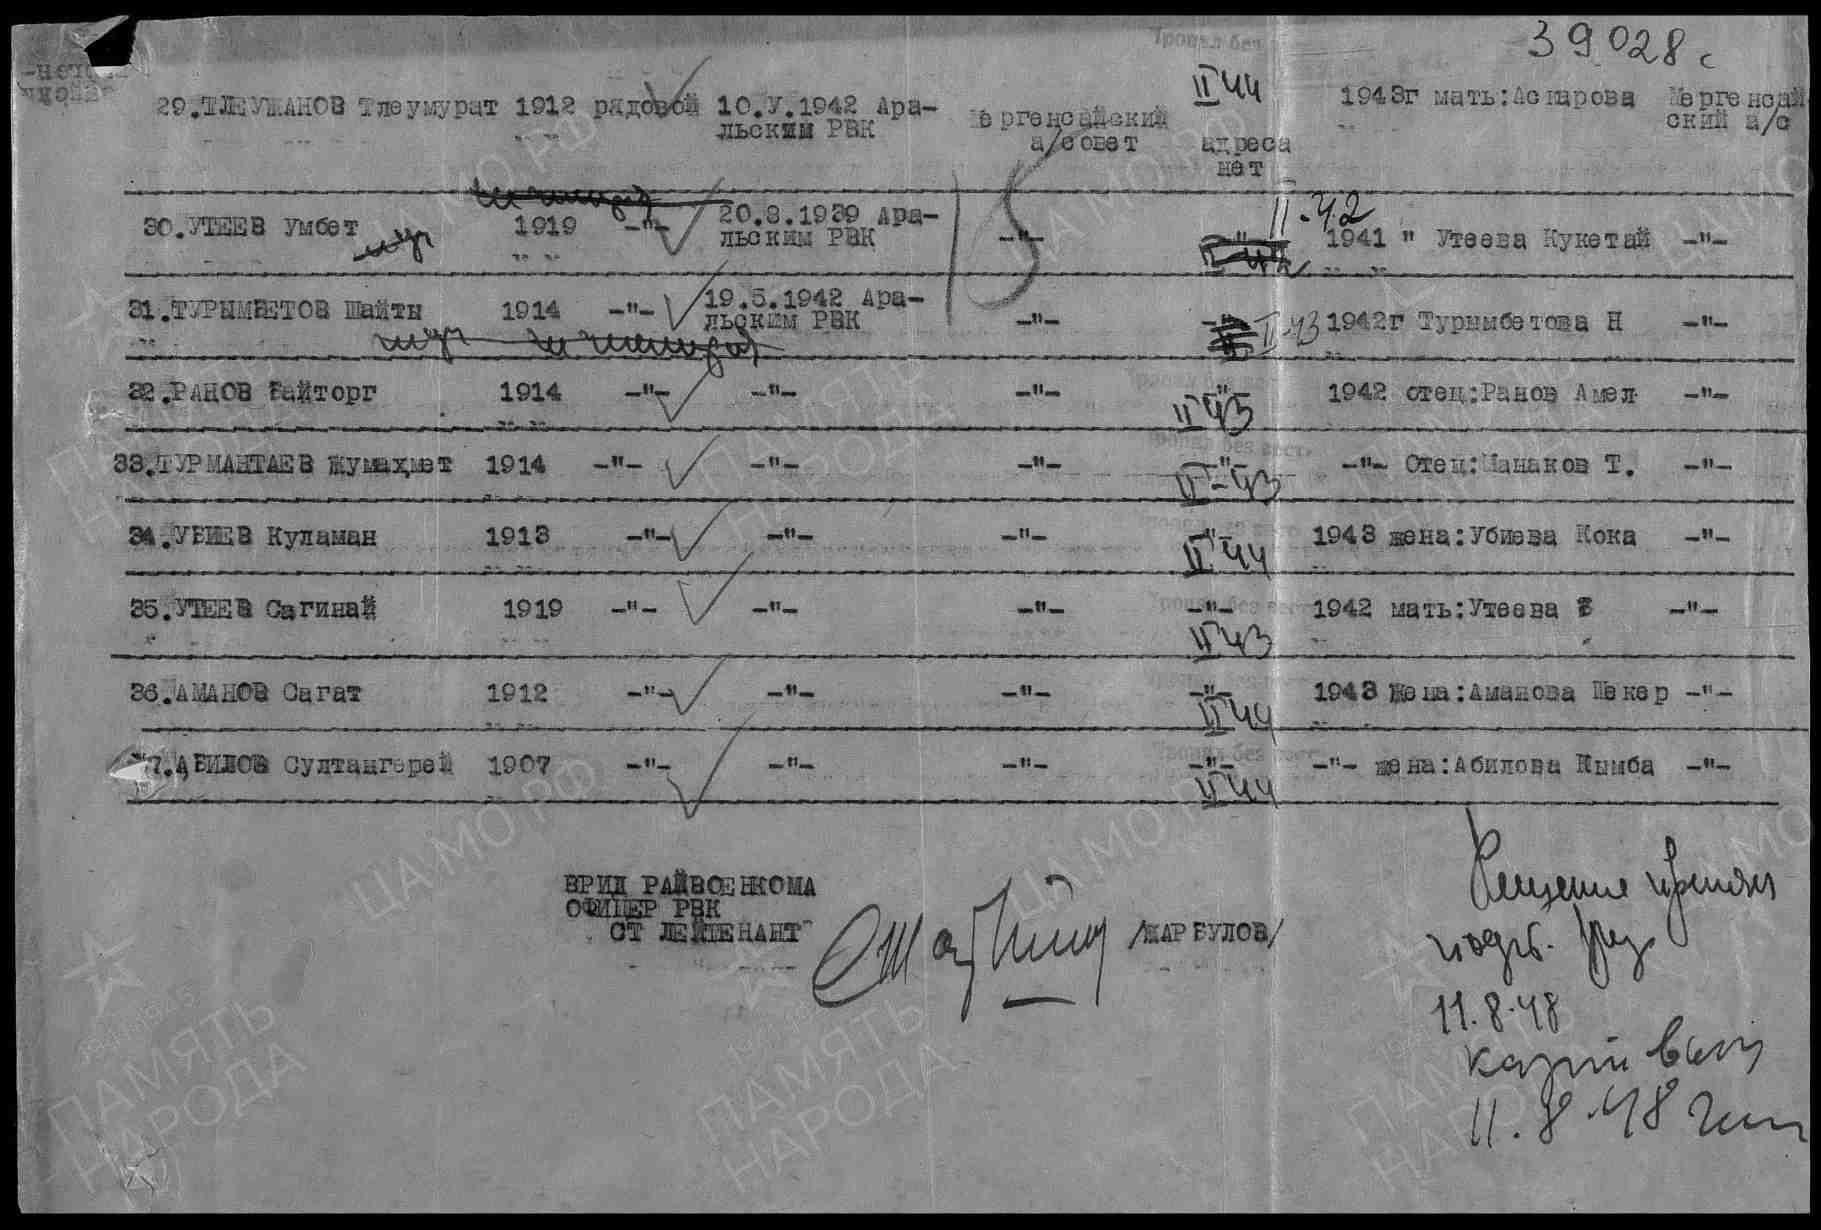 39028с
29.ТЛЕУЖАНОВ Тлеумурат 1912 рядовой 10.У.1942 Ара- Мергенсайский II 44 1943г мать:Аспарова Мергенсай
льским РВК а/совет адреса нет ский а/с
30.УТЕЕВ Умбет 1919 -"- 20.8.1939 Ара- -"- II-42 1941 " Утеева Кукетай -"-
льским РВК
31.ТУРЫМБЕТОВ Шайты 1914 -"- 19.5.1942 Ара- -"- II-43 1942г Турымбетова Н -"-
льским РВК
32.РАНОВ Байторг 1914 -"- -"- -"- -"- 1942 отец:Ранов Амел -"-
II 43
33.ТУРМАНТАЕВ Жумахмет 1914 -"- -"- -"- -"- -"- Отец:Манаков Т. -"-
II-43
34.УБИЕВ Куламан 1913 -"- -"- -"- -"- 1943 жена:Убиева Кока -"-
II 44
35.УТЕЕВ Сагинай 1919 -"- -"- -"- -"- 1942 мать:Утеева -"-
II 43
36.АМАНОВ Сагат 1912 -"- -"- -"- -"- 1943 Жена:Аманова Шекер -"-
II 44
37.АБИЛОВ Султангерей 1907 -"- -"- -"- -"- -"- жена:Абилова Кымба -"-
II 44
ВРИД РАЙВОЕНКОМА
ОФИЦЕР РВК
СТ ЛЕЙТЕНАНТ /ЖАРБУЛОВ/
11.8.48
11.8.48
ЦАМО РФ
ПАМЯТЬ
НАРОДА